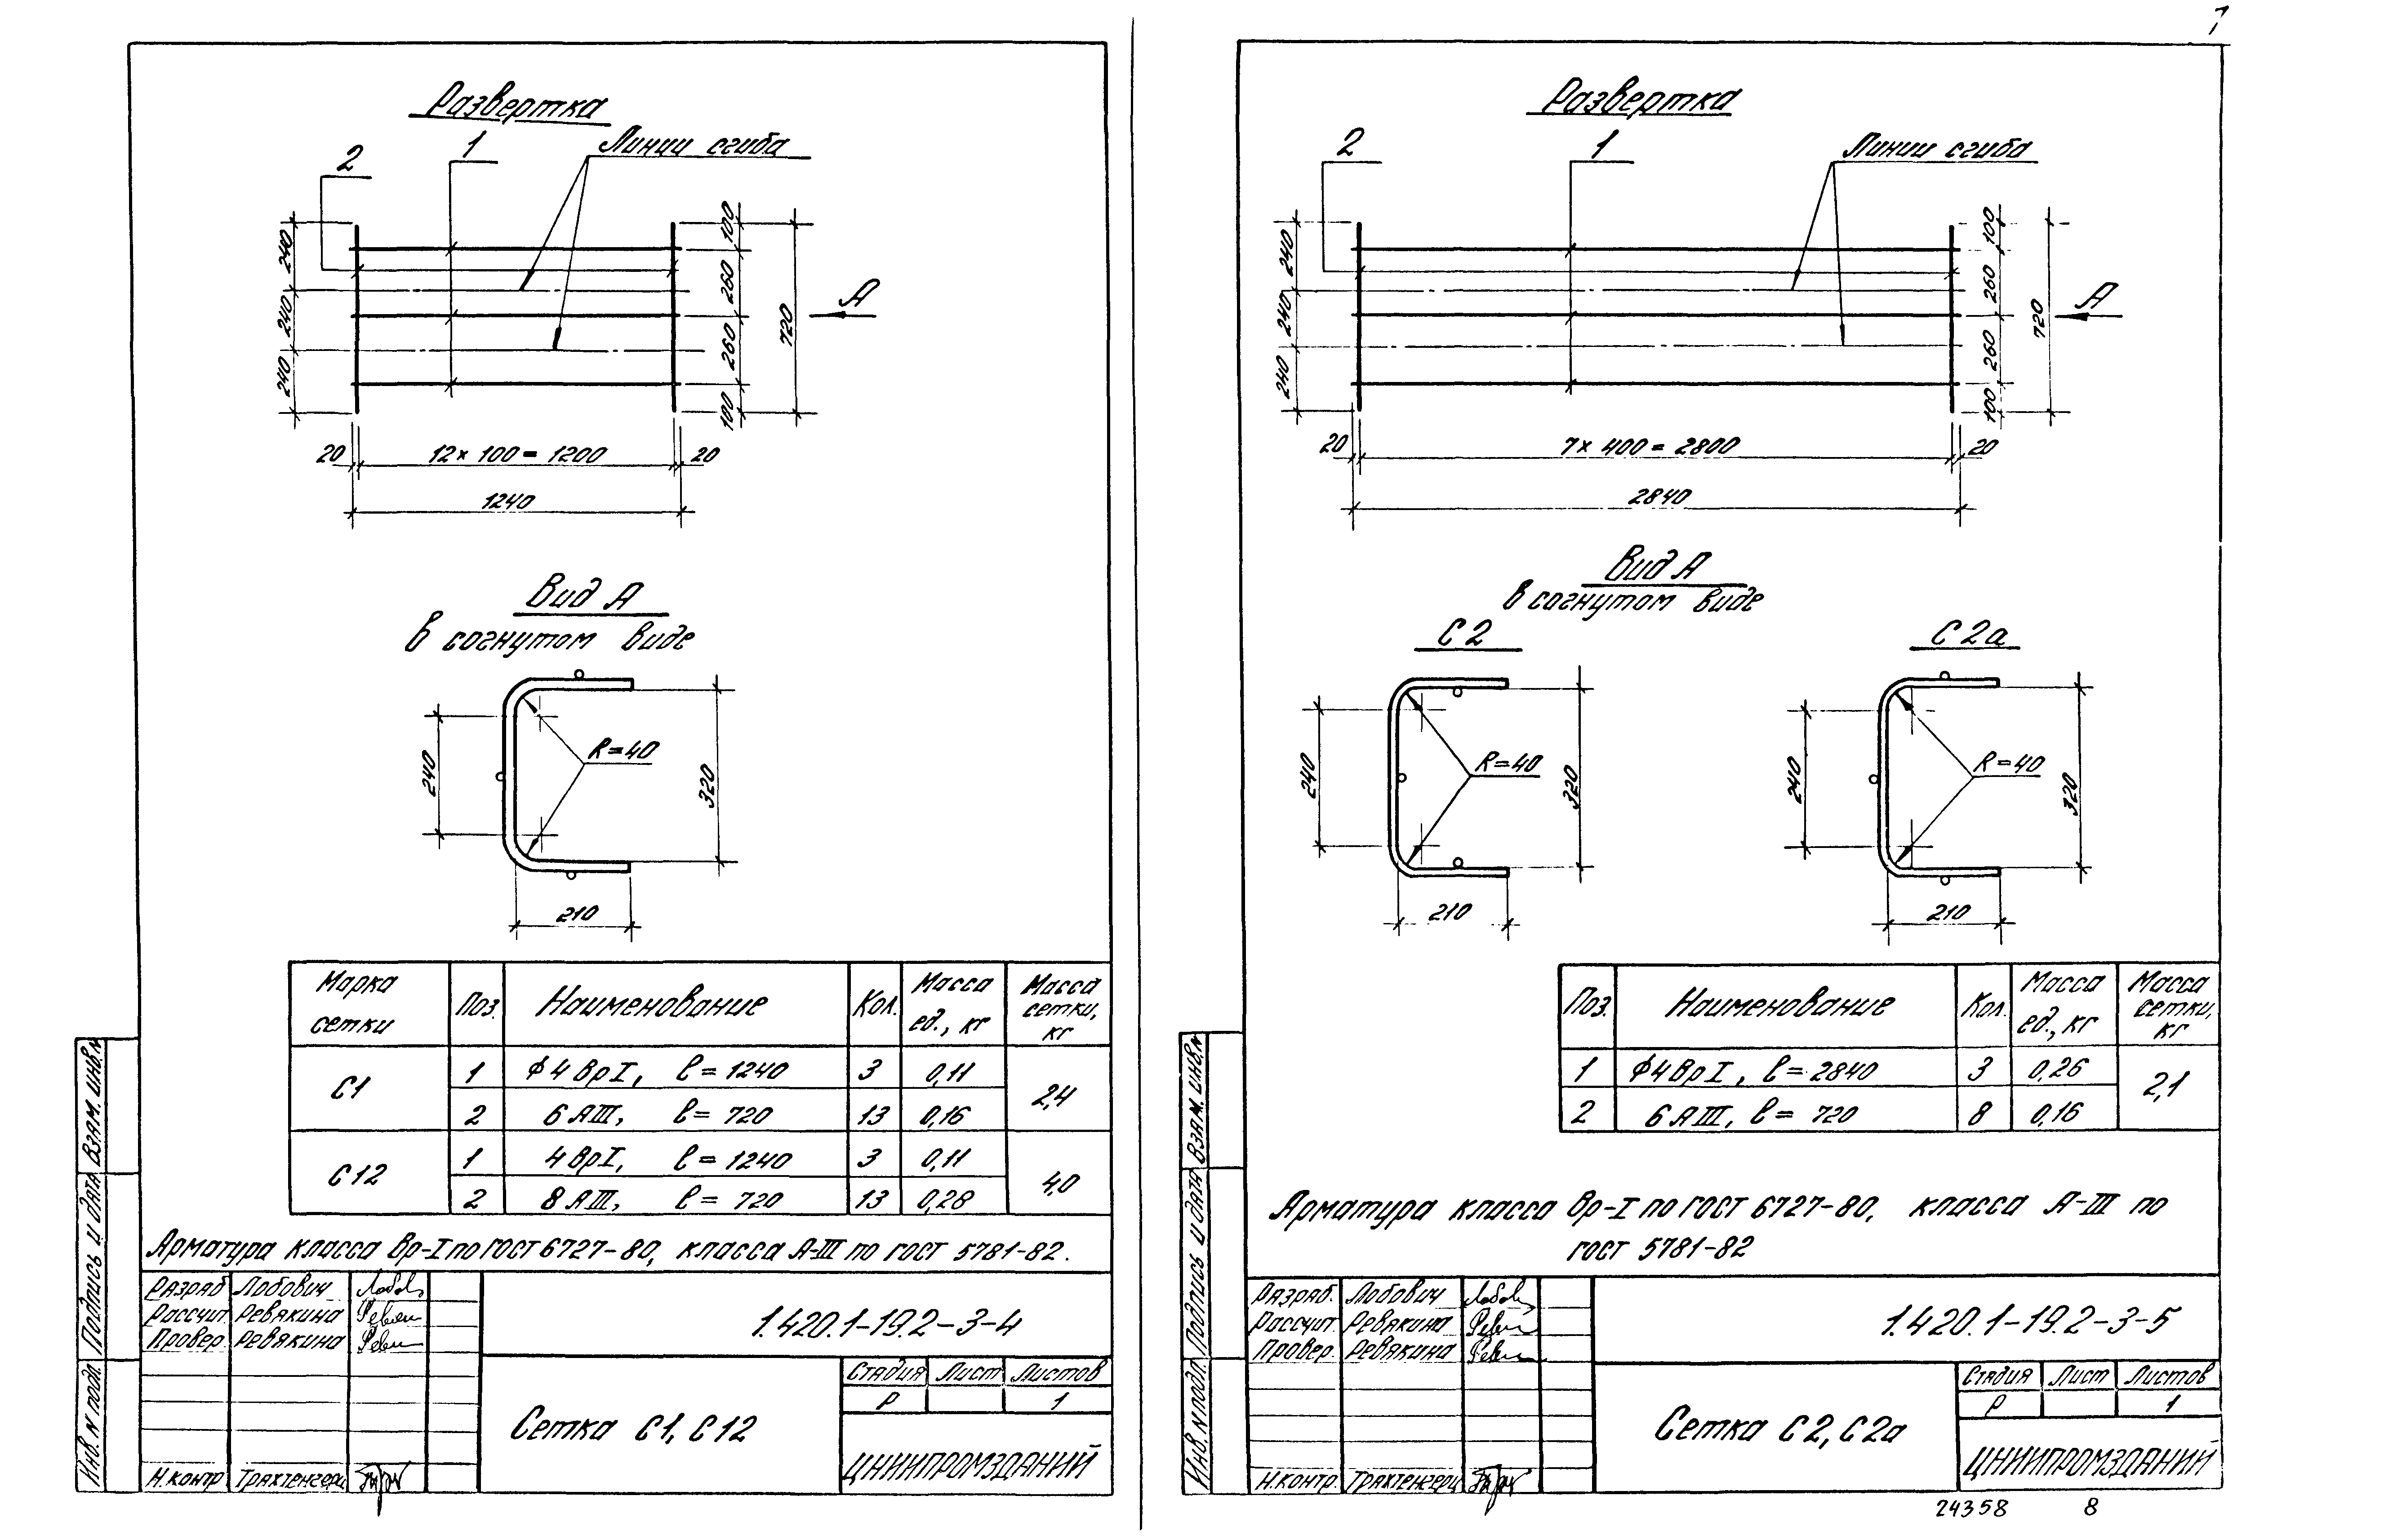 Развертка
2
1
Линии сгиба
240
240
240
100
260
260
100
720
А
20
12×100=1200
20
1240
Вид А
в согнутом виде
R=40
240
320
210
Марка сетки
Поз.
Наименование
Кол.
Масса ед., кг
Масса сетки, кг
С1
1 ϕ4 ВрI, ℓ=1240 3 0,11
2 6 АIII, ℓ= 720 13 0,16
2,4
С12
1 4 ВрI, ℓ=1240 3 0,11
2 8 АIII, ℓ= 720 13 0,28
4,0
Арматура класса Вр-I по ГОСТ 6727-80, класса А-III по ГОСТ 5781-82.
Разраб Лобович
Рассчит. Ревякина
Провер. Ревякина
Н.контр Трахтенгерц
1.420.1-19.2-3-4
Сетка С1, С12
Стадия Лист Листов
Р 1
ЦНИИПРОМЗДАНИЙ
Взам. инв.№
Подпись и дата
Инв. № подл.
Развертка
2
1
Линии сгиба
240
240
240
100
260
260
100
720
А
20
7×400=2800
20
2840
Вид А
в согнутом виде
С2
С2а
R=40
240
320
210
R=40
240
320
210
Поз.
Наименование
Кол.
Масса ед., кг
Масса сетки, кг
1 ϕ4 ВрI, ℓ=2840 3 0,26
2 6 АIII, ℓ= 720 8 0,16
2,1
Арматура класса Вр-I по ГОСТ 6727-80, класса А-III по
ГОСТ 5781-82
Разраб. Лобович
Рассчит. Ревякина
Провер. Ревякина
Н.контр. Трахтенгерц
1.420.1-19.2-3-5
Сетка С2, С2а
Стадия Лист Листов
Р 1
ЦНИИПРОМЗДАНИЙ
Взам. инв.№
Подпись и дата
Инв. № подл.
24358 8